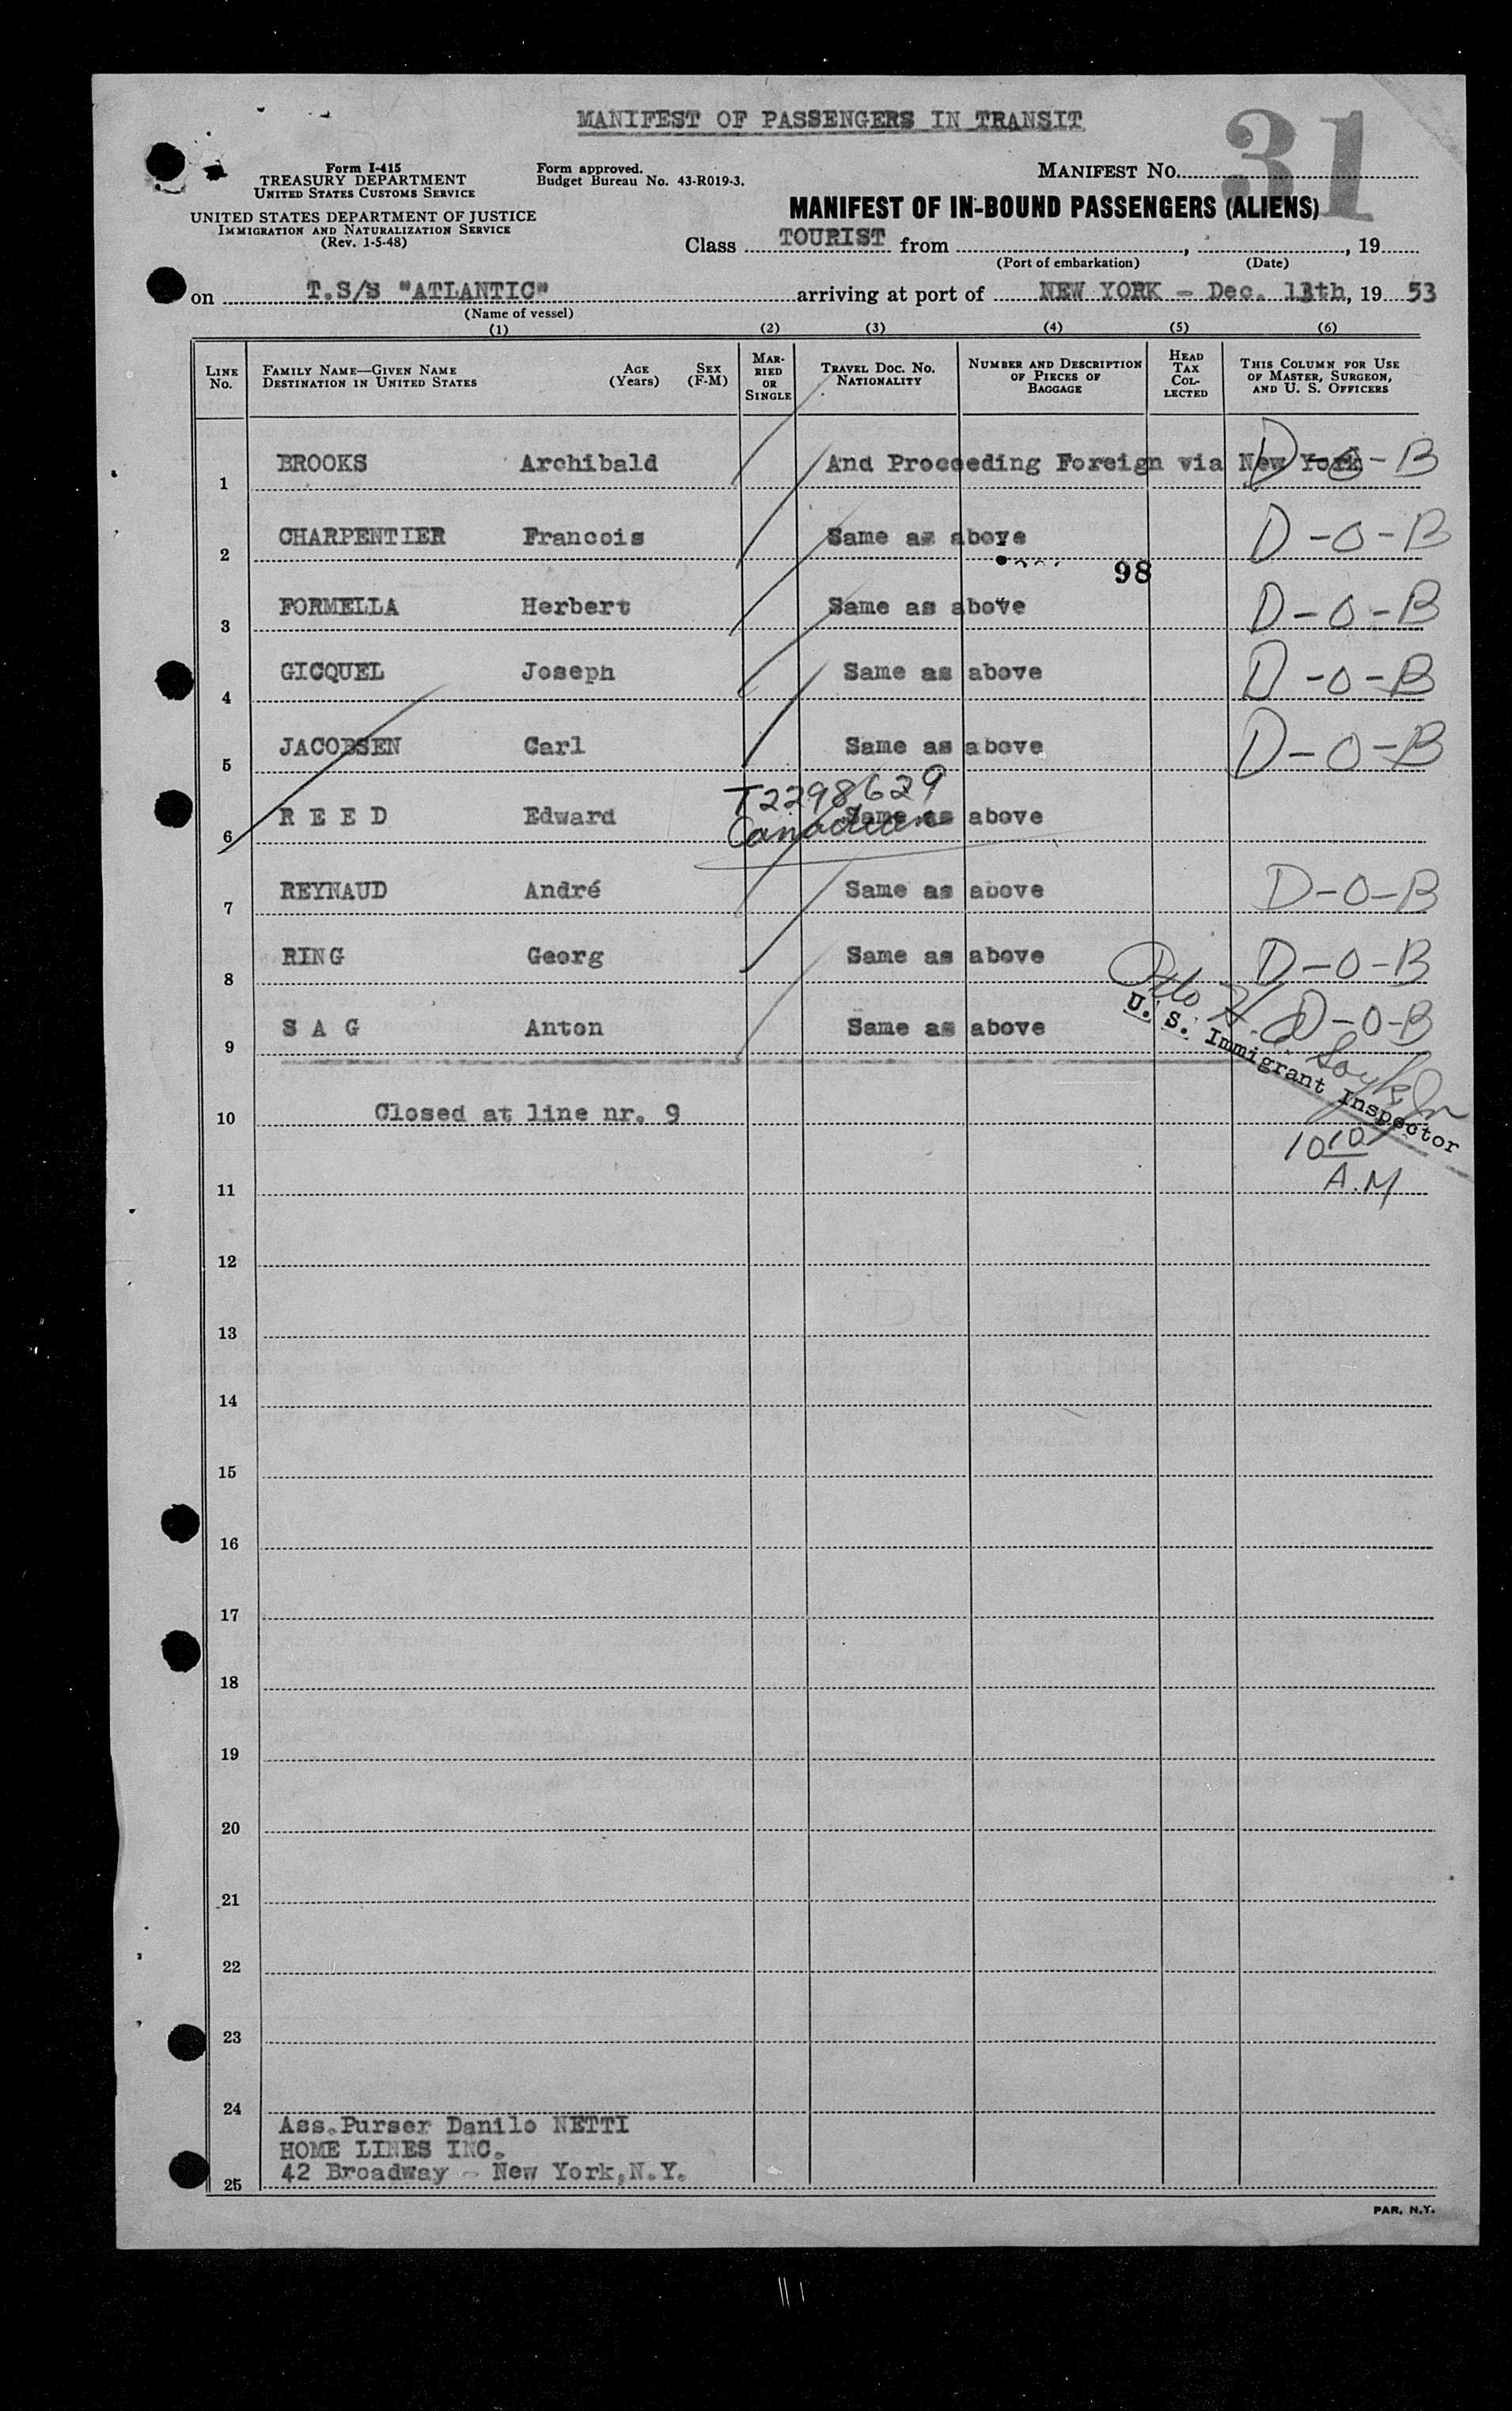 MANIFEST OF PASSENGERS IN TRANSIT
31
Form I-415
TREASURY DEPARTMENT
UNITED STATES CUSTOMS SERVICE
Form approved.
Budget Bureau No. 43-R019-3.
MANIFEST NO.
UNITED STATES DEPARTMENT OF JUSTICE
IMMIGRATION AND NATURALIZATION SERVICE
(Rev. 1-5-48)
MANIFEST OF IN-BOUND PASSENGERS (ALIENS)
Class TOURIST from , , 19
(Port of embarkation) (Date)
on T.S/S "ATLANTIC" arriving at port of NEW YORK - Dec. 13th, 19 53
(Name of vessel)
(1) (2) (3) (4) (5) (6)
LINE No. FAMILY NAME—GIVEN NAME DESTINATION IN UNITED STATES AGE (Years) SEX (F-M) MARRIED OR SINGLE TRAVEL DOC. NO. NATIONALITY NUMBER AND DESCRIPTION OF PIECES OF BAGGAGE HEAD TAX COLLECTED THIS COLUMN FOR USE OF MASTER, SURGEON, AND U. S. OFFICERS
1 BROOKS Archibald And Proceeding Foreign via New York D-O-B
2 CHARPENTIER Francois Same as above D-O-B
98
3 FORMELLA Herbert Same as above D-O-B
4 GICQUEL Joseph Same as above D-O-B
5 JACOBSEN Carl Same as above D-O-B
T2298629
6 R E E D Edward Canadian Same as above
7 REYNAUD André Same as above D-O-B
8 RING Georg Same as above D-O-B
9 S A G Anton Same as above D-O-B
U. S. Immigrant Inspector
10 Closed at line nr. 9
10 10
A.M
11
12
13
14
15
16
17
18
19
20
21
22
23
24
Ass.Purser Danilo NETTI
HOME LINES INC.
25 42 Broadway - New York,N.Y.
PAR, N.Y.